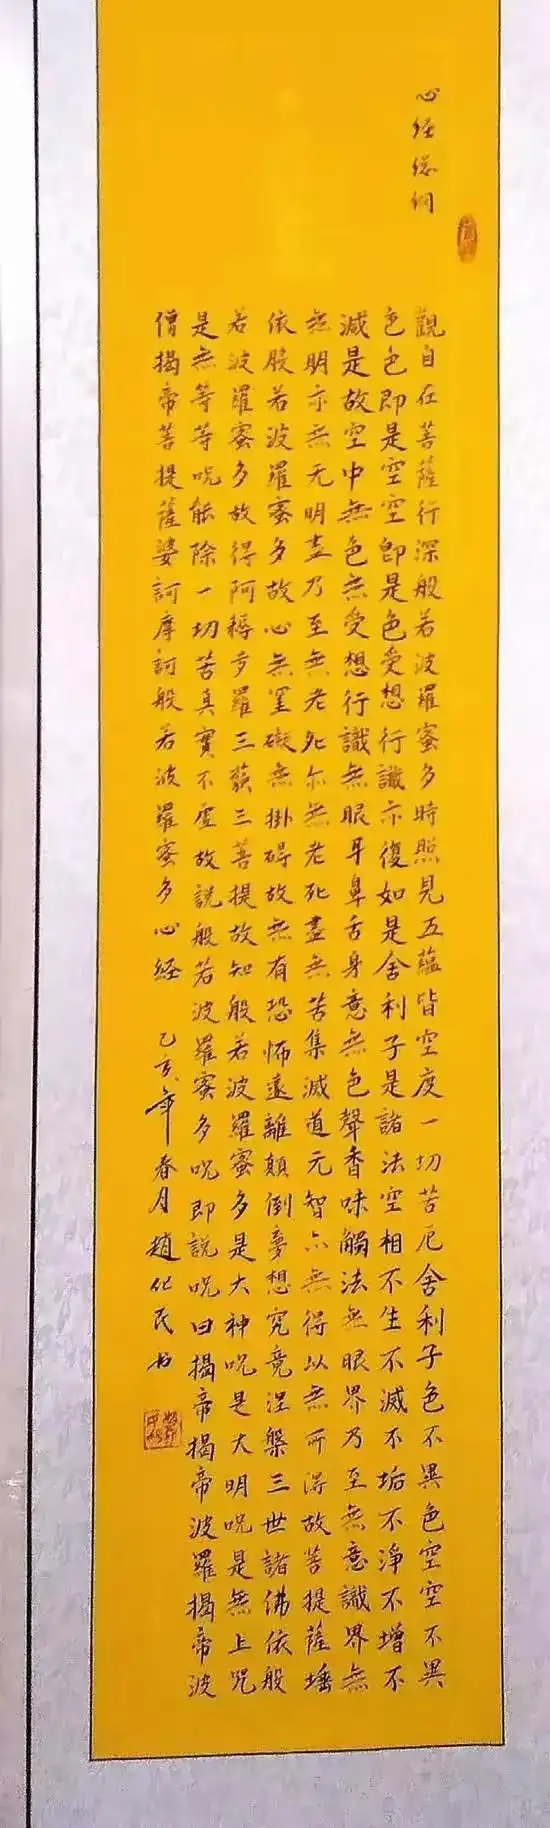 心经总纲
觀自在菩薩行深般若波羅蜜多時照見五蘊皆空度一切苦厄舍利子色不異色空空不異
色色即是空空即是色受想行識亦復如是舍利子是諸法空相不生不滅不垢不淨不增不
減是故空中無色無受想行識無眼耳鼻舌身意無色聲香味觸法無眼界乃至無意識界無
無明亦無无明盡乃至無老死亦無老死盡無苦集滅道元智亦無得以無所得故菩提薩埵
依般若波羅蜜多故心無罣礙無掛碍故無有恐怖遠離顛倒夢想究竟涅槃三世諸佛依般
若波羅蜜多故得阿耨多羅三藐三菩提故知般若波羅蜜多是大神咒是大明咒是無上咒
是無等等咒能除一切苦真實不虛故說般若波羅蜜多咒即說咒曰揭帝揭帝波羅揭帝波
僧揭帝菩提薩婆訶摩訶般若波羅蜜多心經 乙亥年春月趙化民书